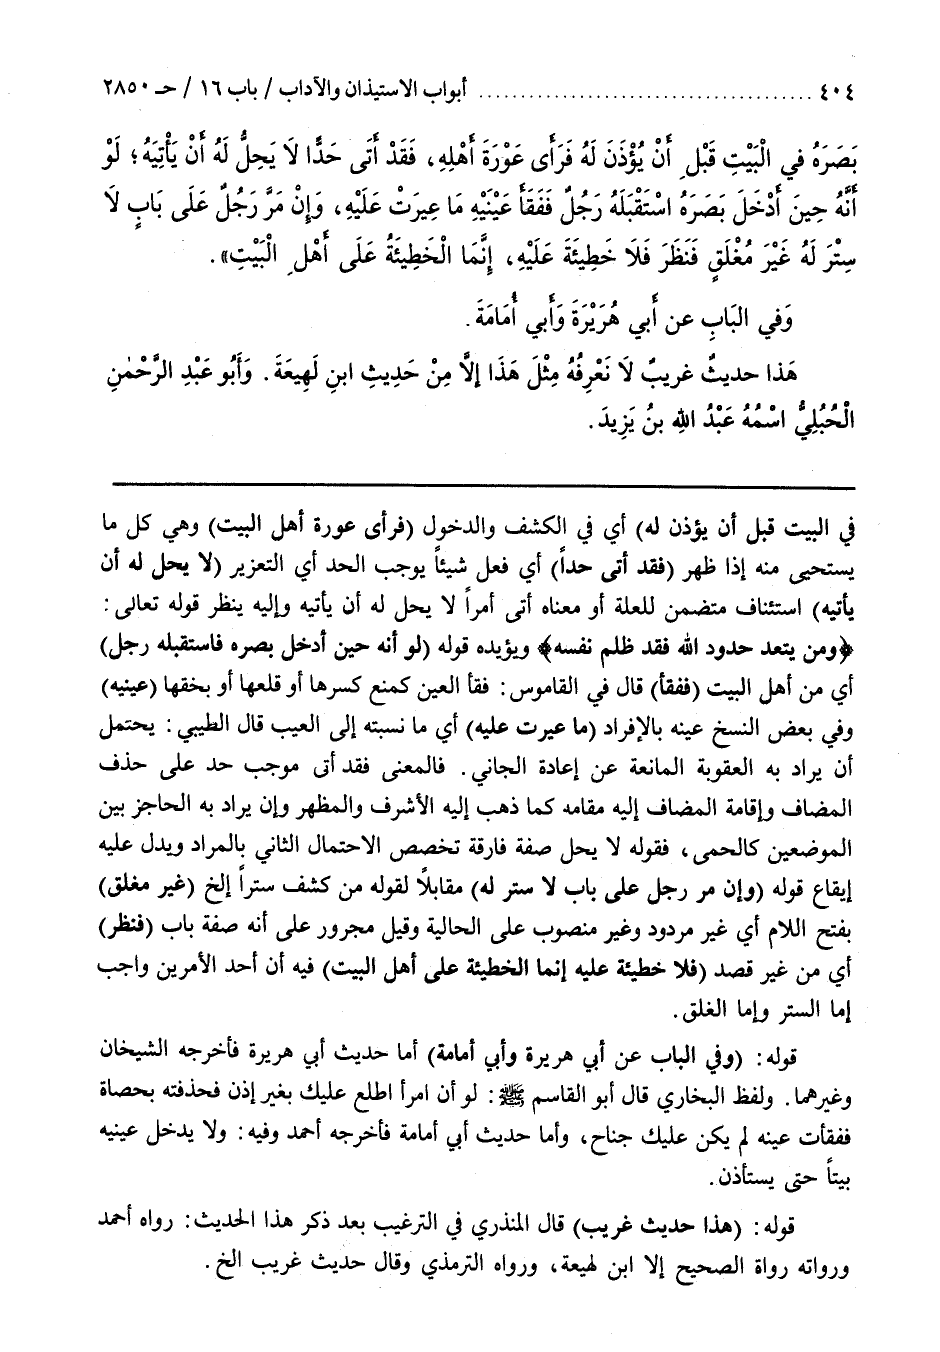 ٤٠٤ ........................................ أبواب الاستيذان والآداب / باب ١٦ / حـ ٢٨٥٠
بَصَرَهُ في الْبَيْتِ قَبْلِ أَنْ يُؤْذَنَ لَهُ فَرَأى عَوْرَةَ أَهْلِهِ، فَقَدْ أَتَى حَدًّا لَا يَحِلُّ لَهُ أَنْ يَأْتِيَهُ؛ لَوْ
أَنَّهُ حِينَ أَدْخَلَ بَصَرَهُ اسْتَقْبَلَهُ رَجُلٌ فَفَقَأَ عَيْنَيْهِ مَا عِيرَتْ عَلَيْهِ، وَإِنْ مَرَّ رَجُلٌ عَلَى بَابٍ لَا
سِتْرَ لَهُ غَيْرَ مُغْلَقٍ فَنَظَرَ فَلَا خَطِيئَةَ عَلَيْهِ، إِنَّمَا الْخَطِيئَةُ عَلَى أَهْلِ الْبَيْتِ».
وَفي البَابِ عن أَبي هُرَيْرَةَ وَأَبي أُمَامَةَ.
هَذا حديثٌ غريبٌ لَا نَعْرِفُهُ مِثْلَ هَذَا إلاَّ مِنْ حَدِيثِ ابنِ لَهِيعَةَ. وَأَبُو عَبْدِ الرَّحْمٰنِ
الْحُبُلِيُّ اسْمُهُ عَبْدُ اللهِ بنُ يَزِيدَ.
في البيت قبل أن يؤذن له) أي في الكشف والدخول (فرأى عورة أهل البيت) وهي كل ما
يستحيى منه إذا ظهر (فقد أتى حداً) أي فعل شيئاً يوجب الحد أي التعزير (لا يحل له أن
يأتيه) استئناف متضمن للعلة أو معناه أتى أمراً لا يحل له أن يأتيه وإليه ينظر قوله تعالى:
﴿ومن يتعد حدود الله فقد ظلم نفسه﴾ ويؤيده قوله (لو أنه حين أدخل بصره فاستقبله رجل)
أي من أهل البيت (ففقأ) قال في القاموس: فقأ العين كمنع كسرها أو قلعها أو بخقها (عينيه)
وفي بعض النسخ عينه بالإفراد (ما عيرت عليه) أي ما نسبته إلى العيب قال الطيبي: يحتمل
أن يراد به العقوبة المانعة عن إعادة الجاني. فالمعنى فقد أتى موجب حد على حذف
المضاف وإقامة المضاف إليه مقامه كما ذهب إليه الأشرف والمظهر وإن يراد به الحاجز بين
الموضعين كالحمى، فقوله لا يحل صفة فارقة تخصص الاحتمال الثاني بالمراد ويدل عليه
إيقاع قوله (وإن مر رجل على باب لا ستر له) مقابلاً لقوله من كشف ستراً إلخ (غير مغلق)
بفتح اللام أي غير مردود وغير منصوب على الحالية وقيل مجرور على أنه صفة باب (فنظر)
أي من غير قصد (فلا خطيئة عليه إنما الخطيئة على أهل البيت) فيه أن أحد الأمرين واجب
إما الستر وإما الغلق.
قوله: (وفي الباب عن أبي هريرة وأبي أمامة) أما حديث أبي هريرة فأخرجه الشيخان
وغيرهما. ولفظ البخاري قال أبو القاسم ﷺ: لو أن امرأ اطلع عليك بغير إذن فحذفته بحصاة
ففقأت عينه لم يكن عليك جناح، وأما حديث أبي أمامة فأخرجه أحمد وفيه: ولا يدخل عينيه
بيتاً حتى يستأذن.
قوله: (هذا حديث غريب) قال المنذري في الترغيب بعد ذكر هذا الحديث: رواه أحمد
ورواته رواة الصحيح إلا ابن لهيعة، ورواه الترمذي وقال حديث غريب الخ.